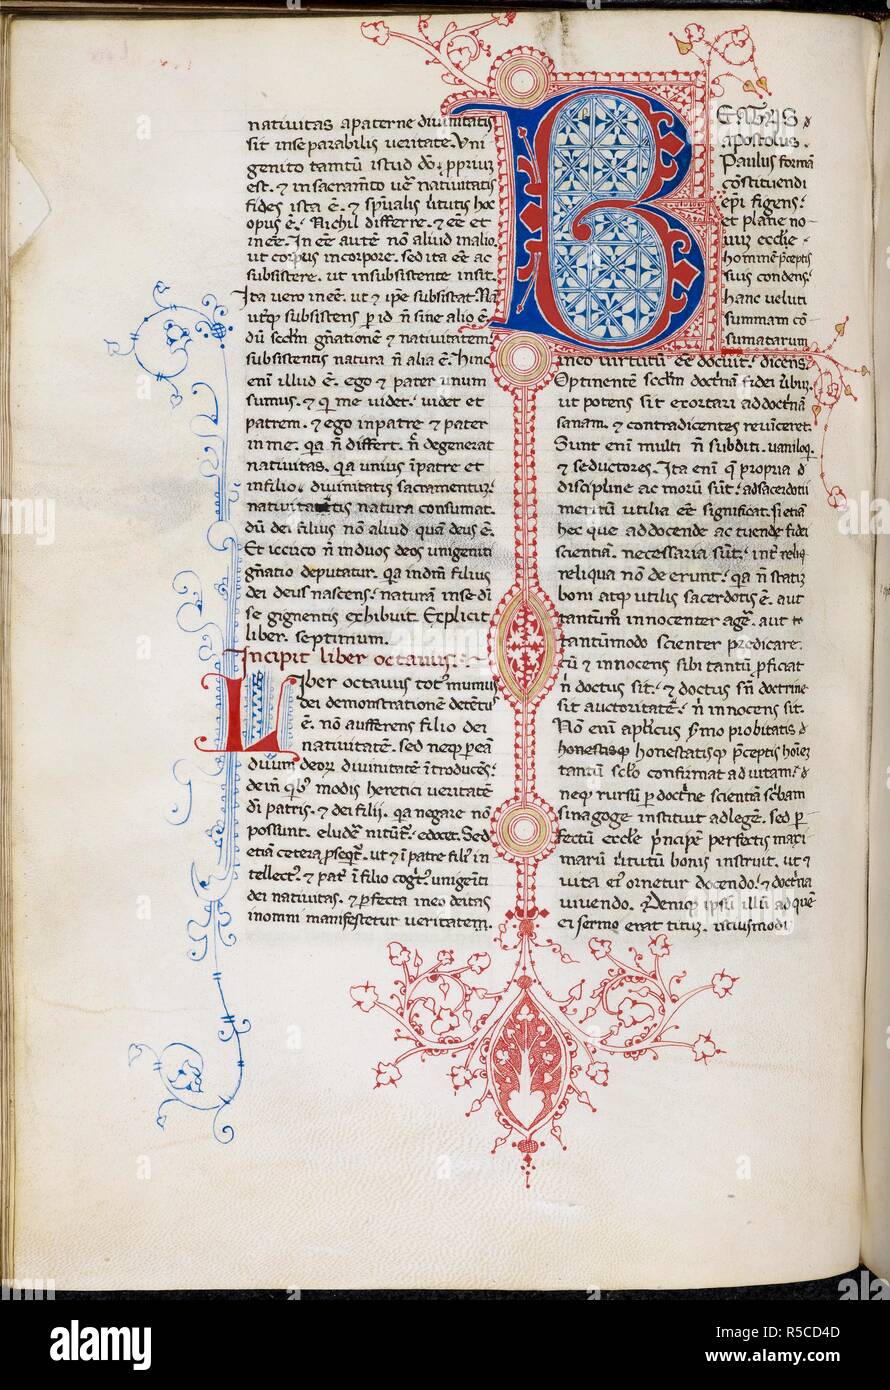 nativitas a paterne divinitatis
sit inseparabilis veritate. Uni
genito tamtũ istud dõ. ꝓpriuʒ
est. ⁊ in sacram̃to ue᷑ nativitatis
fides ista ẽ. ⁊ sp̃ualis ũtutis hoc
opus ẽ. Nichil differre. ⁊ eẽ et
in eẽ. In eẽ autẽ nõ aliud in alio.
ut corpus in corpore. sed ita eẽ ac
subsistere. ut in subsistente insit.
Ita vero in eẽ. ut ⁊ ip̃e subsistat. Nã
subsistens ꝑ id ñ sine alio ẽ.
dũ scđm gñationẽ ⁊ nativitatem
subsistentis natura ñ alia ẽ. hinc
eni illud ẽ. ego ⁊ pater unum
sumus. ⁊ q̃ me videt. videt et
patrem. ⁊ ego in patre ⁊ pater
in me. q̃a ñ differt. degenerat
nativitas. q̃a unius ĩ patre et
in filio. divinitatis sacramentuʒ.
nativitatis natura consumat.
dũ dei filius nõ aliud quã deus ẽ.
Et iccirco ñ in duos deos unigeniti
gñatio deputatur. q̃a in dm̃ filius
dei deus nascens. naturã in se di
se gignentis exhibuit. Explicit
liber septimum.
Incipit liber octavus.
Liber octavus totꝰ munius
dei demonstrationẽ detẽtuꝰ
ẽ. nõ aufferens filio dei
nativitatẽ. sed neqꝫ ꝑ eã
duum deoꝝ divinitatẽ ĩtroducẽs.
deĩ q̃bꝰ modis heretici veritatẽ
dĩ patris. ⁊ dei filii. q̃a negare nõ
possunt. Sed
etiã cetera ut ⁊ ĩ patre filꝰ in
⁊ ĩ filio unigeniti
dei nativitas. ⁊ ꝑfecta in eo deitas
in omni manifestetur veritatem.
BEATUS
apostolus
Paulus formã
cõstituendi
ep̃i figens.
et plane no
ecclie
hominẽ p̃ceptis
suis condens.
hanc veluti
summam cõ
sumatarum
in eo virtutũ eẽ docuit. dicens.
Optinentẽ scđm doctᷓnã fidei
ut potens sit exortari ad doctᷓnã
sanam. ⁊ contradicentes revinceret.
Sunt eni multi ñ subditi. vaniloq.
⁊ seductores. Ita eni q̃ propria đ
discipline ac morũ sũt. ad sacerdotii
meritũ utilia eẽ significat. si etiã
hec que ad docende ac tuende fidei
scientiã. necessaria sũt. int̃ reliq
reliqua nõ deerunt. q̃a ñ statiʒ
boni atqꝫ utilis sacerdotis ẽ. aut
tantũm̃ innocenter age᷑. aut
tantũmodo scienter predicare.
cũ ⁊ innocens sibi tantũ ꝓficiat
ñ doctus sit. ⁊ doctus sñ doctrine
sit auctoritatẽ. ñ innocens sit.
Nõ eni apl̃icus probitatis
honestisqꝫ honestatisqꝫ p̃ceptis
tantũ scłõ confirmat ad vitam.
neqꝫ rursũ ꝑ doctᷓne scientiã
sinagoge instituit ad legẽ. sed ꝑ
fectũ ecclie p̃ncipẽ perfectis maxi
marũ ũtutũ bonis instruit. ut ⁊
vita eiꝰ ornetur docendo. ⁊ doctᷓna
vivendo. Deniqꝫ ipsũ illũ ad quẽ
ei sermo erat titũ. istiusmodi
alamy
Image ID: R5CD4D
www.alamy.com